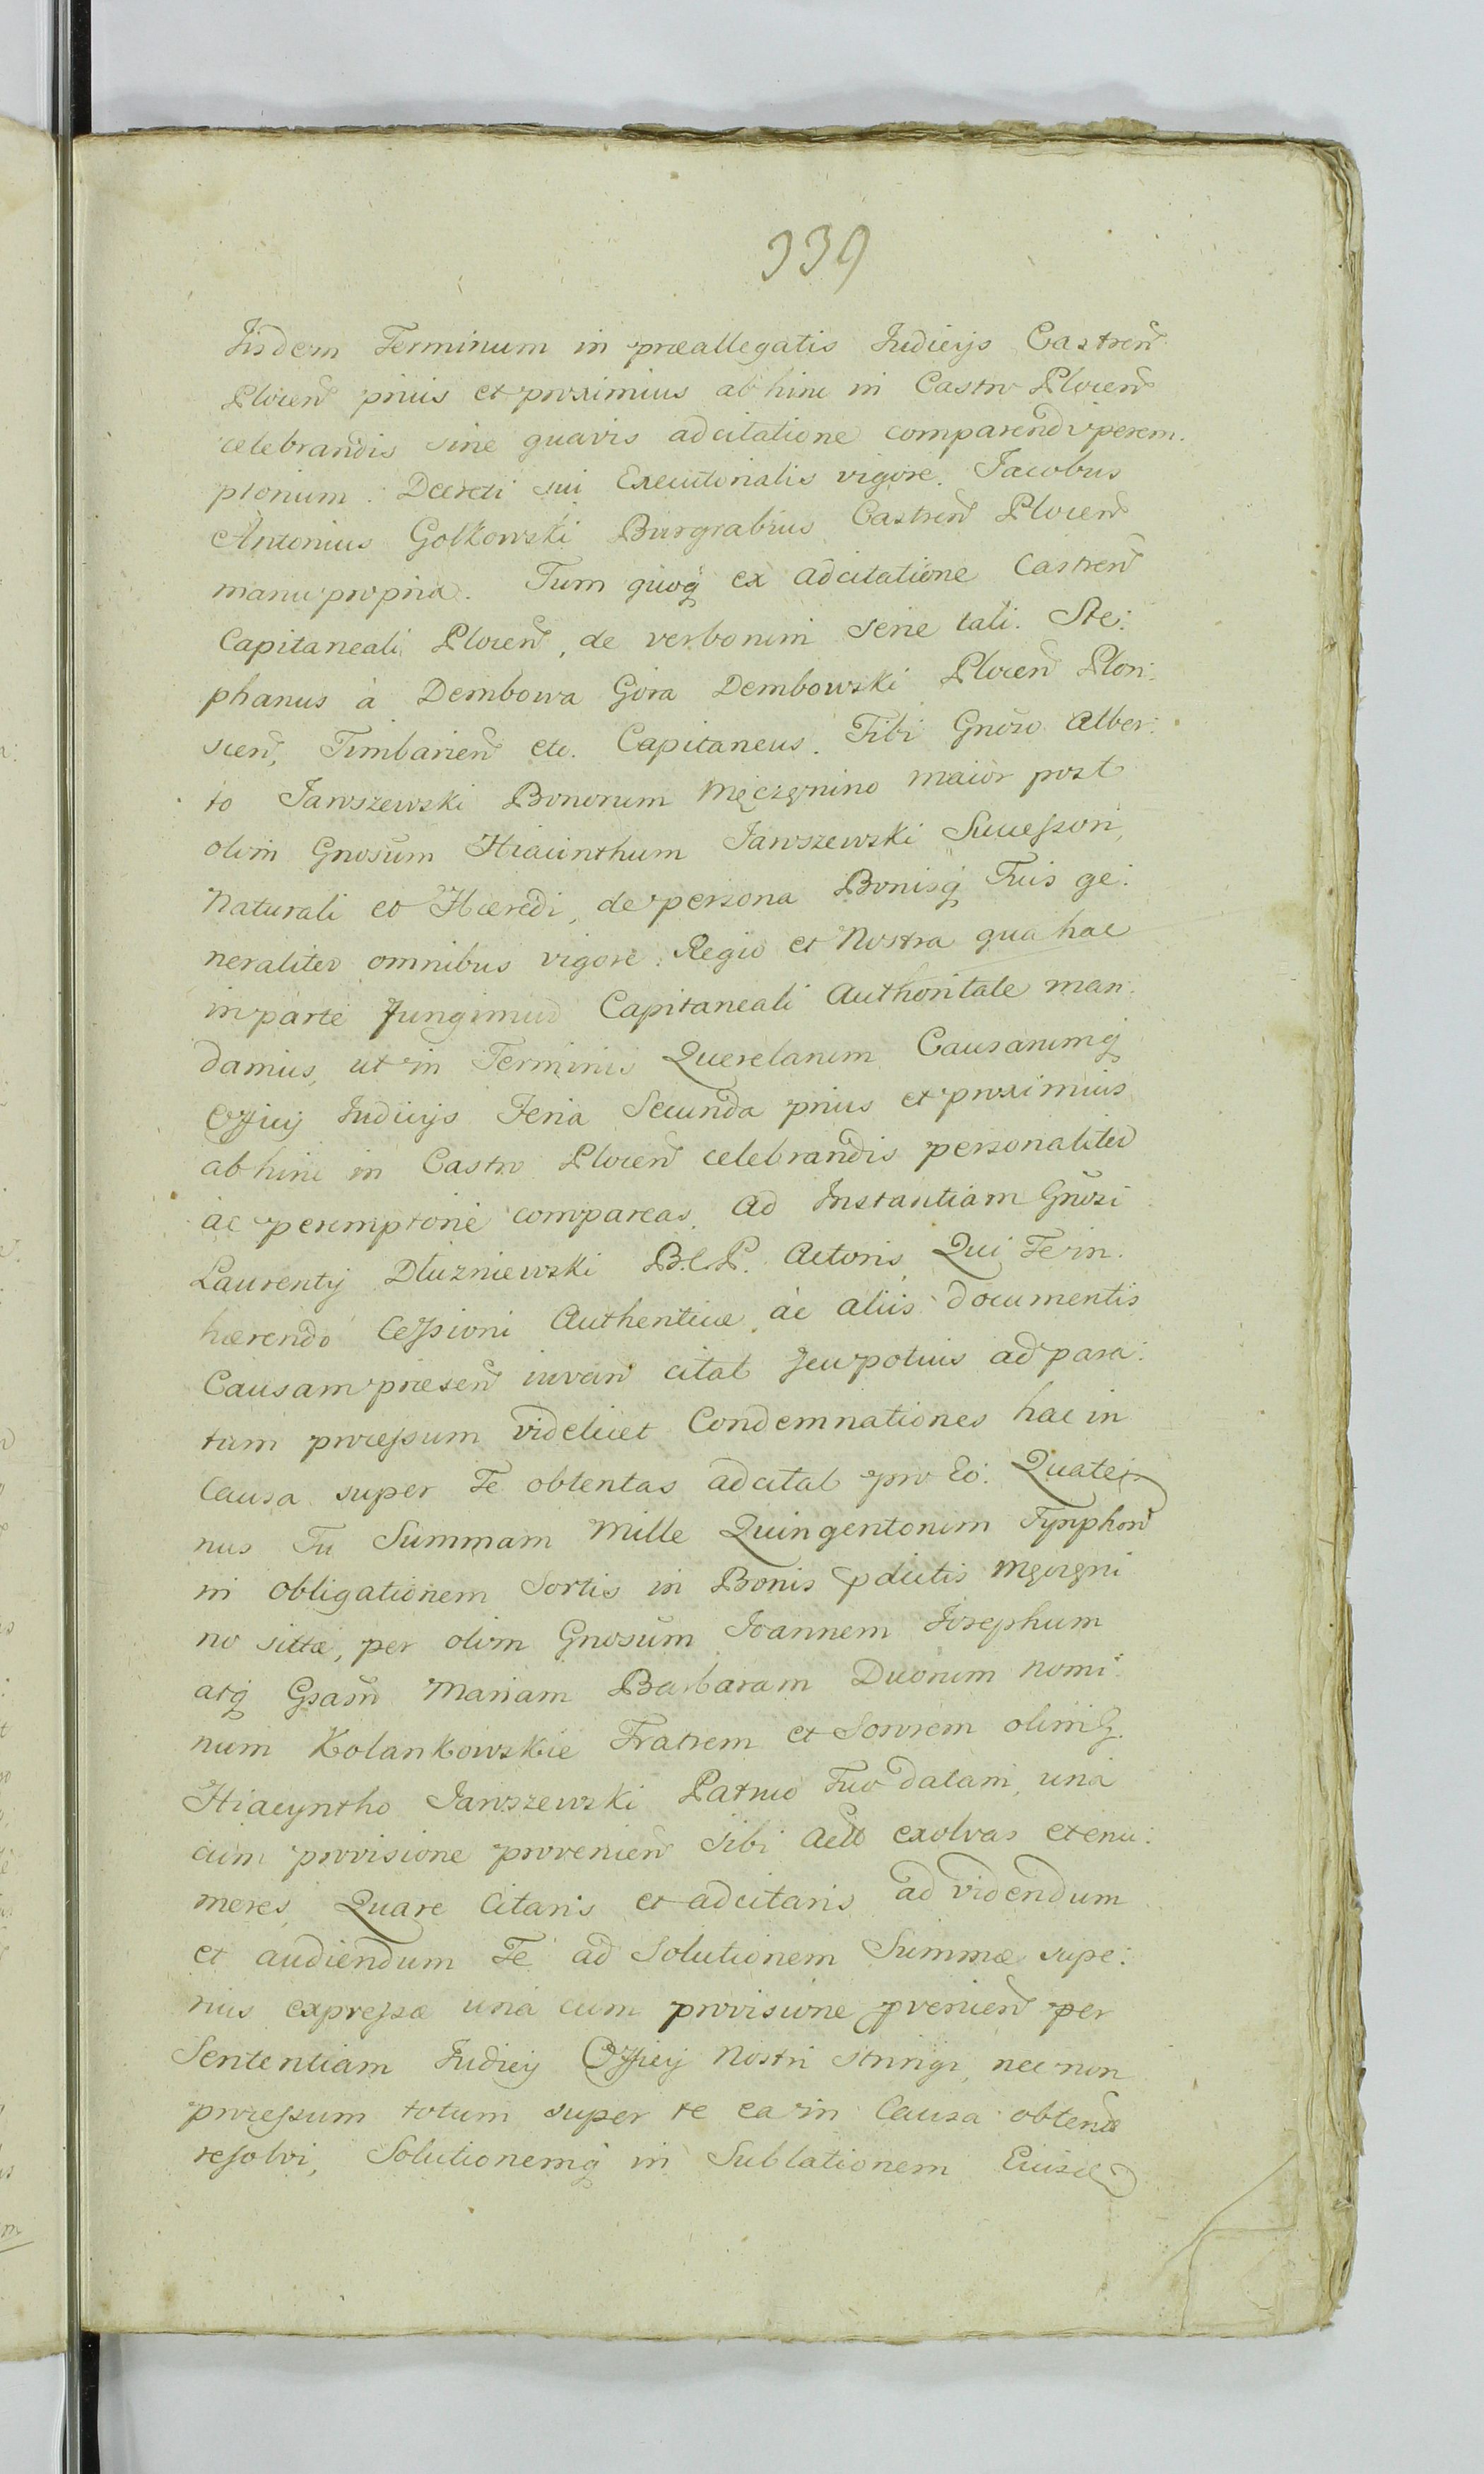 339
Iisdem Terminum in præallegatis Iudicijs Castren̄
Plocen̄ prius et proximius abhinc in Castro Plocen̄
celebrandis sine quavis adcitatione comparendi perem.
ptorium. Decreti sui Executorialis vigore. Iacobus
Antonius Golkowski Burgrabius Castren̄ Plocen̄
manu propria. Tum quoq̃ ex adcitatione Castren̄
Capitaneali Plocen̄, de verborum serie tali. Ste:
phanus à Dembowa Gora Dembowski Plocen̄ Plon:
scen̄, Timbarien̄ etc. Capitaneus. Tibi Gnõso Alber:
to Jaroszewski Bonorum Męczęnino maior post
olim Gnosūm Hiacinthum Jaroszewski Successori,
Naturali et Hæredi, de persona Bonisq̃ Tuis ge:
neraliter omnibus vigore Regio et Nostra qua hac
in parte fungimur Capitaneali Authoritate man:
damus, ut in Terminis Querelarum Causarumq̃
Officij Iudicijs Feria Secunda prius et proximius
abhinc in Castro Plocen̄ celebrandis personaliter
ac peremptorie compareas. Ad Instantiam Gnõsi
Laurentij Dłuzniewski B.C.P. Actoris, Qui Te in:
hærendo Cessioni Authenticæ ac aliis documentis
Causam præsen̄ iuvan̄ citat seu potius ad para:
tum processum videlicet Condemnationes hac in
Causa super Te obtentas adcitat pro Eo. Quate:
nus Tu Summam Mille Quingentorum Tynphon̄
in obligationem Sortis in Bonis pdictis Męczęni
no sittæ, per olim Gnosūm Ioannem Iosephum
atq̃ Gsam̄ Mariam Barbaram Duorum Nomi:
num Kolankowskie Fratrem et Sororem olim G.
Hiacyntho Jaroszewski Patruo Tuo datam, una
cum provisione provenien̄ sibi Actt exolvas et enu:
meres, Quare Citaris et adcitaris ad videndum
et audiendum Te ad Solutionem Summæ supe:
rius expressæ una cum provisione pvenien̄ per
Sententiam Iudicij Officij Nostri stringi, nec non
processum totum super te ea in Causa obtent
resolvi, Solutionemq̃ in Sublationem Eiusd